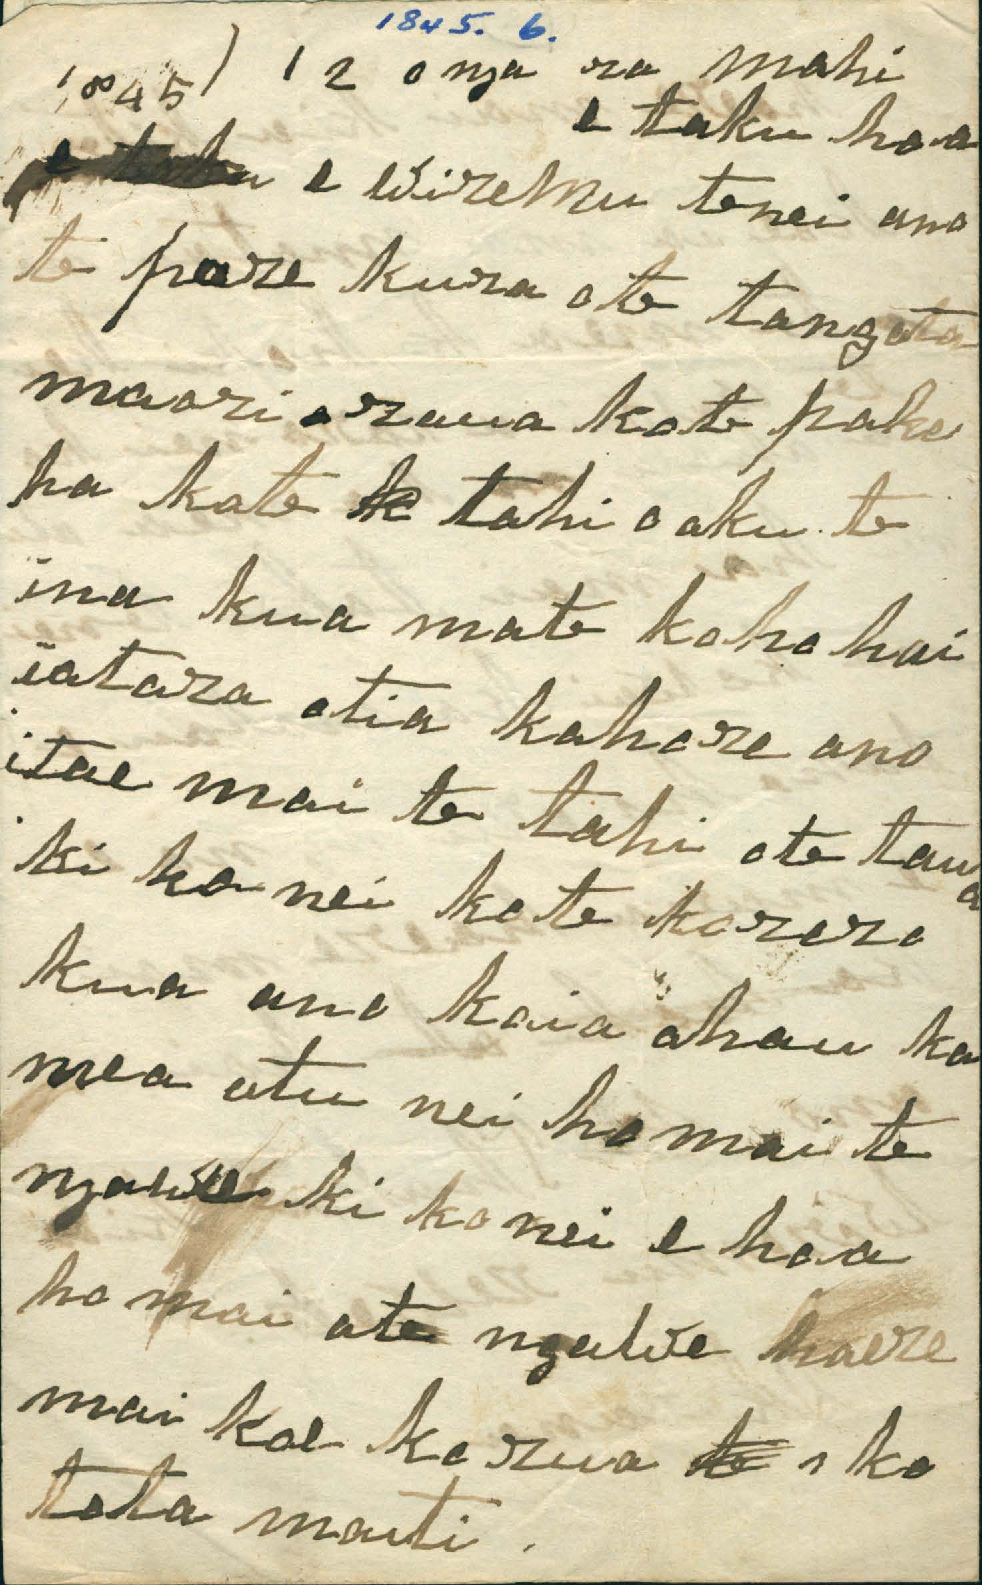 1845. 6.
1845) 12 o nga ra mahi
e taku hoa
e taku e wiremu tenei ano
te pare kura ote tangata
maori oraua kote pake
ha kote tahi o aku te
ina kua mate koho hai
iatara otia kahore ano
itae mai te tahi ote taua
ki ko nei kote korero
kua ano kaia ahau ka
mea atu nei ho mai te
ngawe ki ko nei e hoa
ho mai ate ngawe haere
mai koe korua ko
tota mauti.